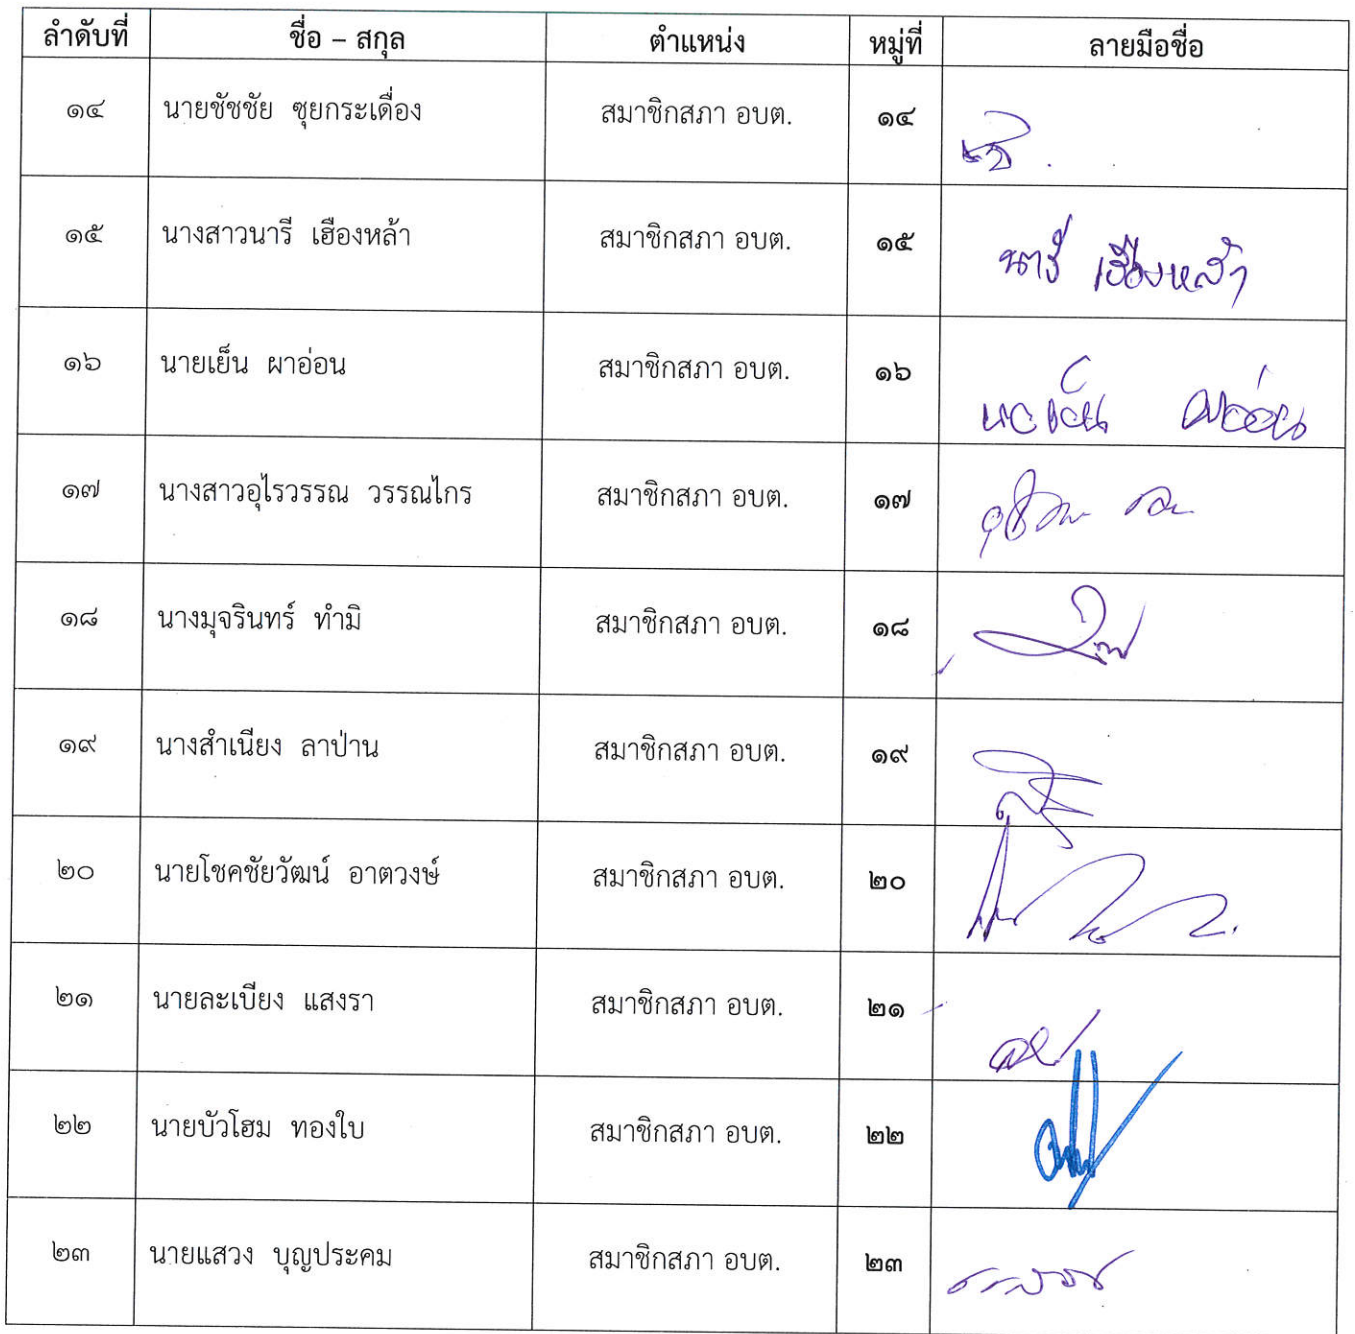 ลำดับที่ ชื่อ – สกุล ตำแหน่ง หมู่ที่ ลายมือชื่อ
๑๔ นายชัชชัย ซุยกระเดื่อง สมาชิกสภา อบต. ๑๔
๑๕ นางสาวนารี เฮืองหล้า สมาชิกสภา อบต. ๑๕ นารี เฮืองหล้า
๑๖ นายเย็น ผาอ่อน สมาชิกสภา อบต. ๑๖ นายเย็น ผาอ่อน
๑๗ นางสาวอุไรวรรณ วรรณไกร สมาชิกสภา อบต. ๑๗
๑๘ นางมุจรินทร์ ทำมิ สมาชิกสภา อบต. ๑๘
๑๙ นางสำเนียง ลาป่าน สมาชิกสภา อบต. ๑๙
๒๐ นายโชคชัยวัฒน์ อาตวงษ์ สมาชิกสภา อบต. ๒๐
๒๑ นายละเบียง แสงรา สมาชิกสภา อบต. ๒๑
๒๒ นายบัวโฮม ทองใบ สมาชิกสภา อบต. ๒๒
๒๓ นายแสวง บุญประคม สมาชิกสภา อบต. ๒๓